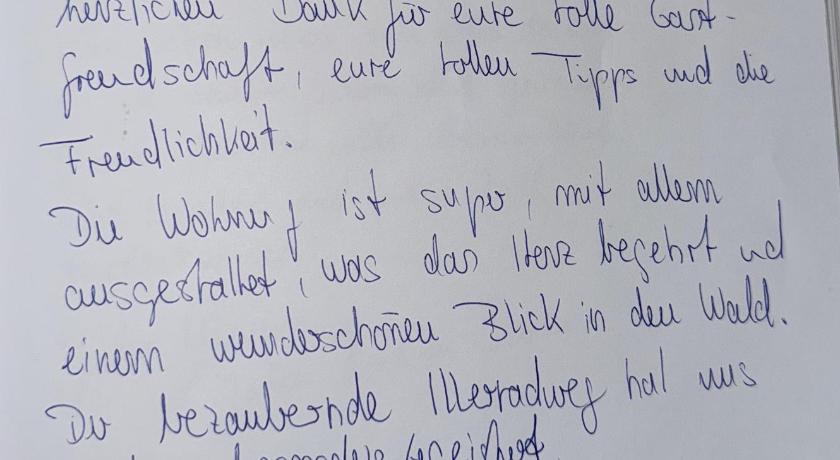 herzlichen Dank für eure tolle Gast-
freundschaft, eure tollen Tipps und die
Freundlichkeit.
Die Wohnung ist super, mit allem
ausgestattet, was das Herz begehrt und
einem wunderschönen Blick in den Wald.
Der bezaubernde Illerradweg hat uns
bereichert